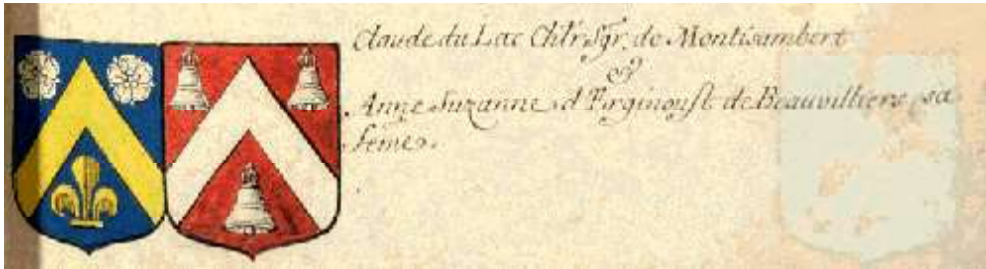 Claude du Lac Chlr. Sgr. de Montisambert
&
Anne Suzanne d'Irginoust de Beauvilliers sa
feme.